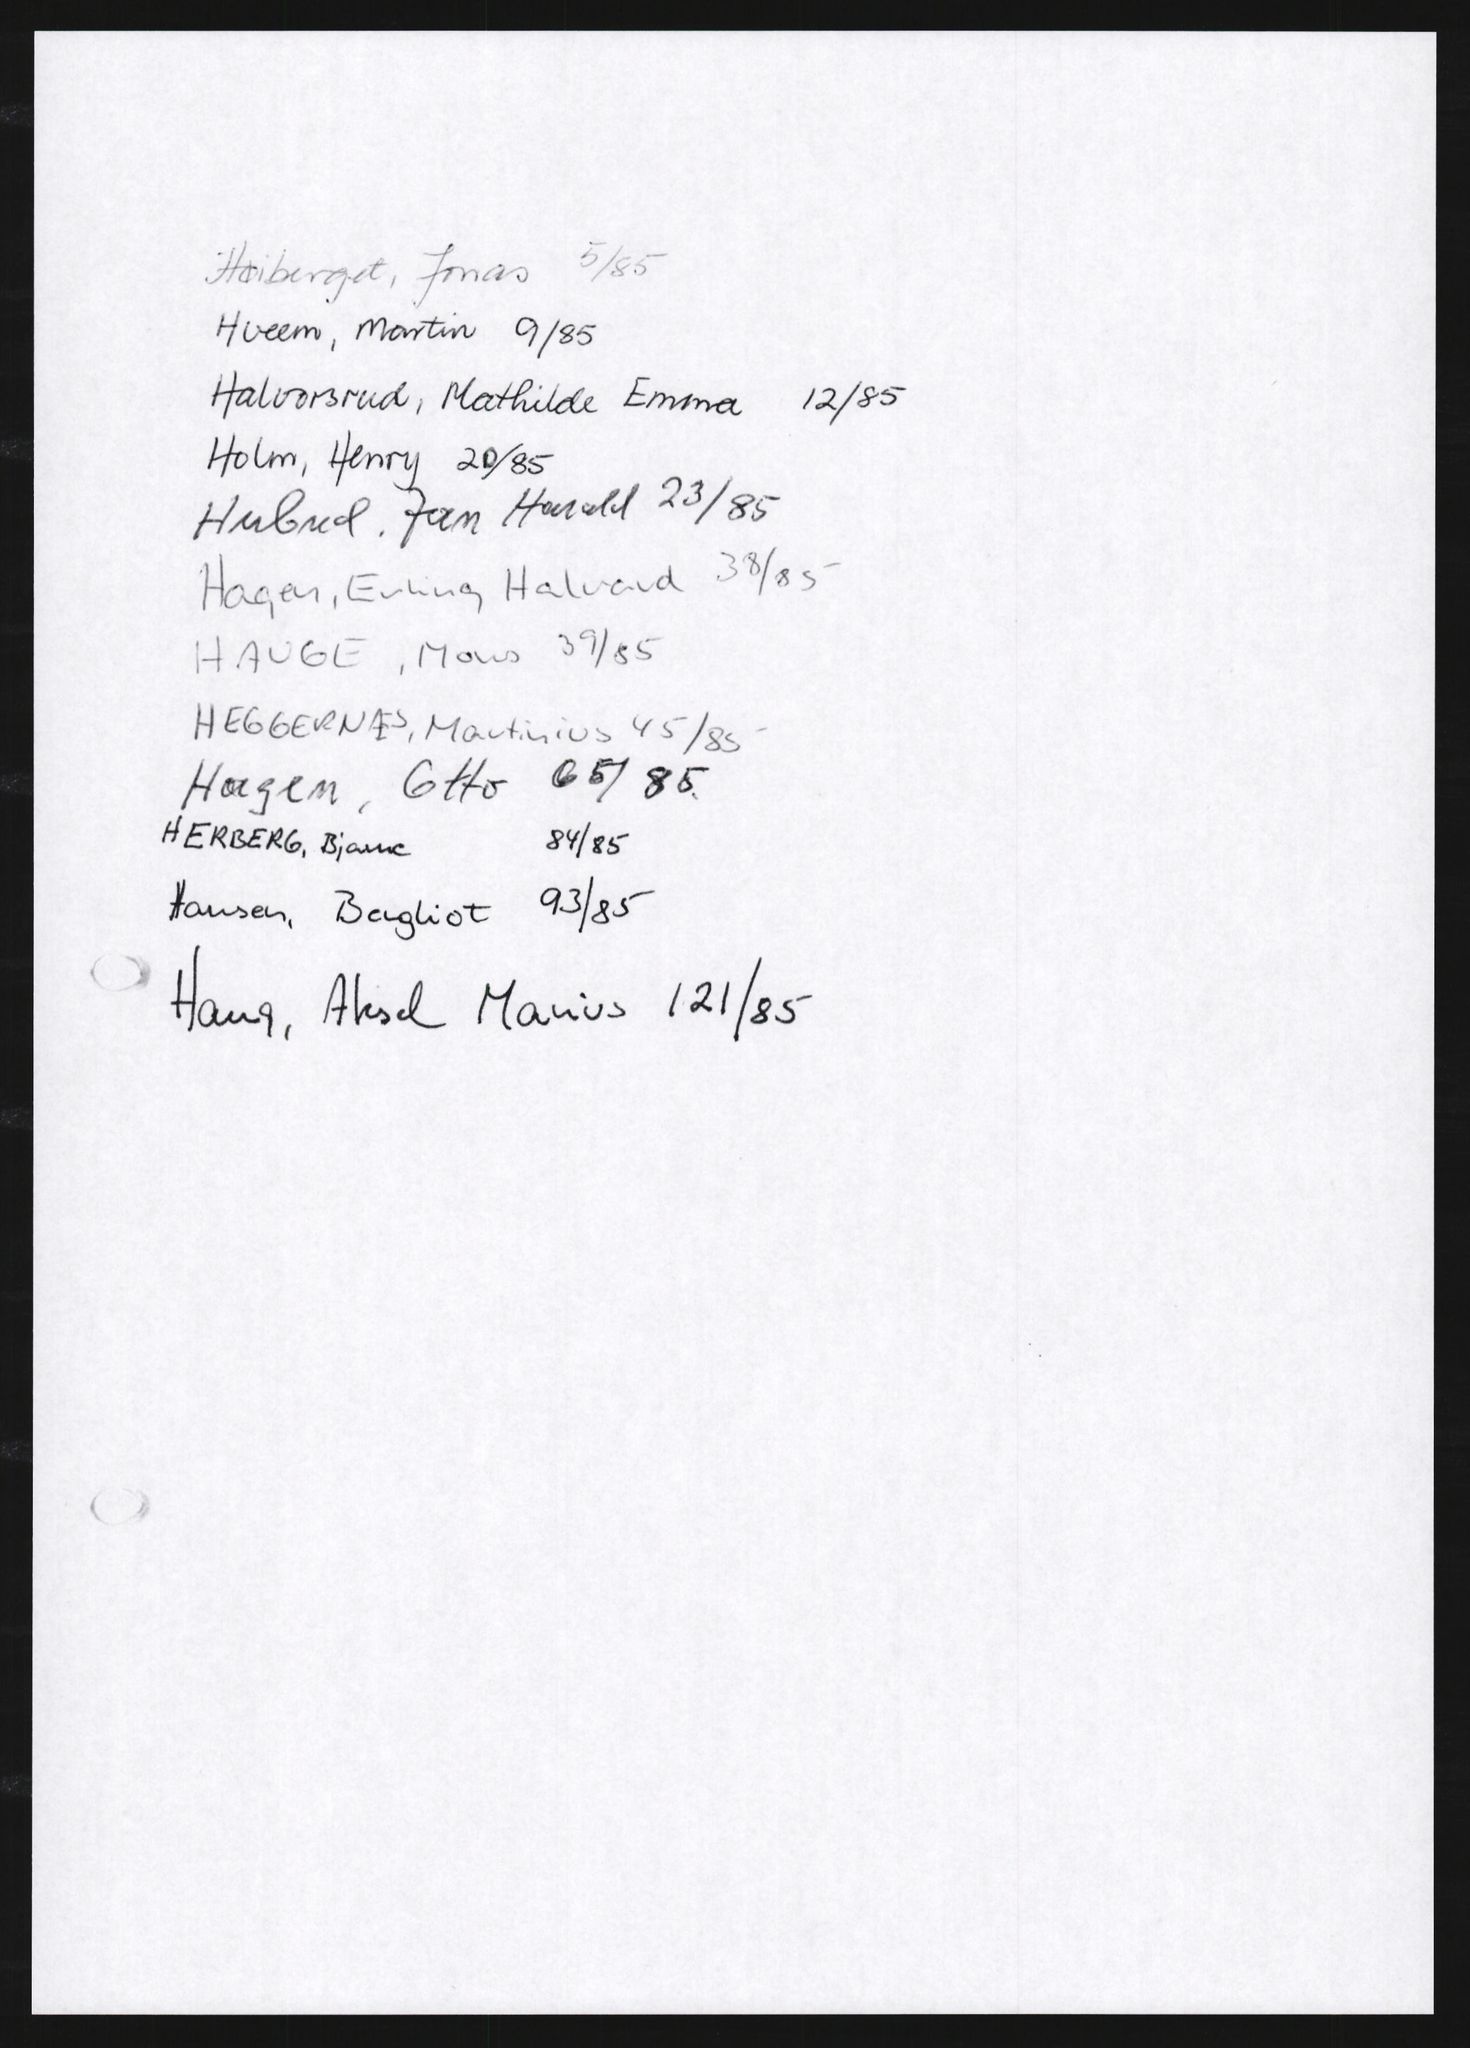 Hoiberget, Jonas 5/85
Hveem, Martin 9/85
Halvorsrud, Mathilde Emma 12/85
Holm, Henry 20/85
Jan Harald 23/85
Hagen, Erling Halvard 38/85
HAUGE, Mons 39/85
HEGGERNÆS, Martinius 45/85
Hagen, Otto 65/85.
HERBERG, Bjarne 84/85
Hansen, Bergliot 93/85
Haug, Aksel Marius 121/85